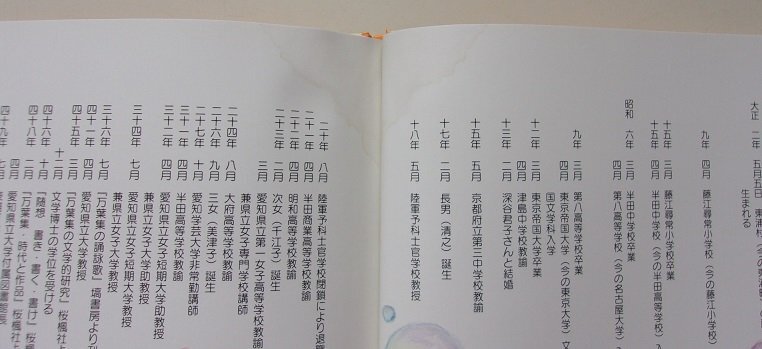 大正 二年 五月五日 東浦村（今の東浦
生まれる
九年 四月 藤江尋常小学校（今の藤江小学校）
十五年 三月 藤江尋常小学校卒業
十五年 四月 半田中学校（今の半田高等学校）入
昭和 六年 三月 半田中学校卒業
四月 第八高等学校（今の名古屋大学）入
九年 三月 第八高等学校卒業
四月 東京帝国大学（今の東京大学）文
国文学科入学
十二年 三月 東京帝国大学卒業
四月 津島中学校教諭
十三年 二月 深谷君子さんと結婚
十五年 五月 京都府立第三中学校教諭
十七年 二月 長男（清之）誕生
十八年 五月 陸軍予科士官学校教授
二十年 八月 陸軍予科士官学校閉鎖により退職
二十一年 四月 半田商業高等学校教諭
二十二年 四月 明和高等学校教諭
二十三年 二月 次女（千江子）誕生
三月 愛知県立第一女子高等学校教諭
兼県立女子専門学校講師
二十四年 八月 大府高等学校教諭
二十六年 九月 三女（美津子）誕生
二十七年 十月 愛知学芸大学非常勤講師
三十一年 四月 半田高等学校教諭
三十二年 四月 愛知県立女子短期大学助教授
兼県立女子大学助教授
三十四年 七月 愛知県立女子短期大学教授
兼県立女子大学教授
三十六年 七月 「万葉集の誦詠歌」塙書房より刊
四十一年 四月 愛知県立大学教授
四十五年 三月 「万葉集の文学的研究」桜楓社
十二月 文学博士の学位を受ける
四十六年 十月 「随想 書き・書く・書け」桜楓社よ
四十八年 二月 「万葉集・時代と作品」桜楓社
四十九年 七月 愛知県立大学付属図書館長